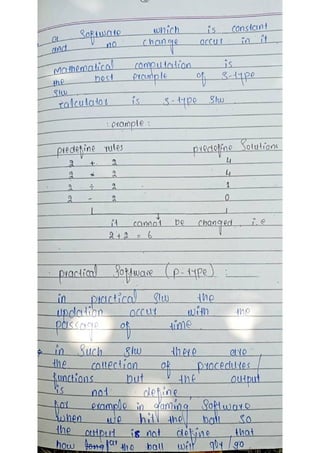 a Software which is constant
and no change occur in it.
Mathematical computation is
the best example of S-type
S/w.
calculator is S-type S/w
: example :
predefine rules predefine Solutions
2 + 2 4
2 * 2 4
2 ÷ 2 1
2 - 2 0
it cannot be changed i.e
2+2 = 6
practical Software (P-type) :
in practical S/w the
updation occur with the
passage of time.
in Such S/w there are
the collection of procedures /
functions but the output
is not define,
for example in Gaming Software
when we hit the ball so
the output is not define that
how far the ball will go.